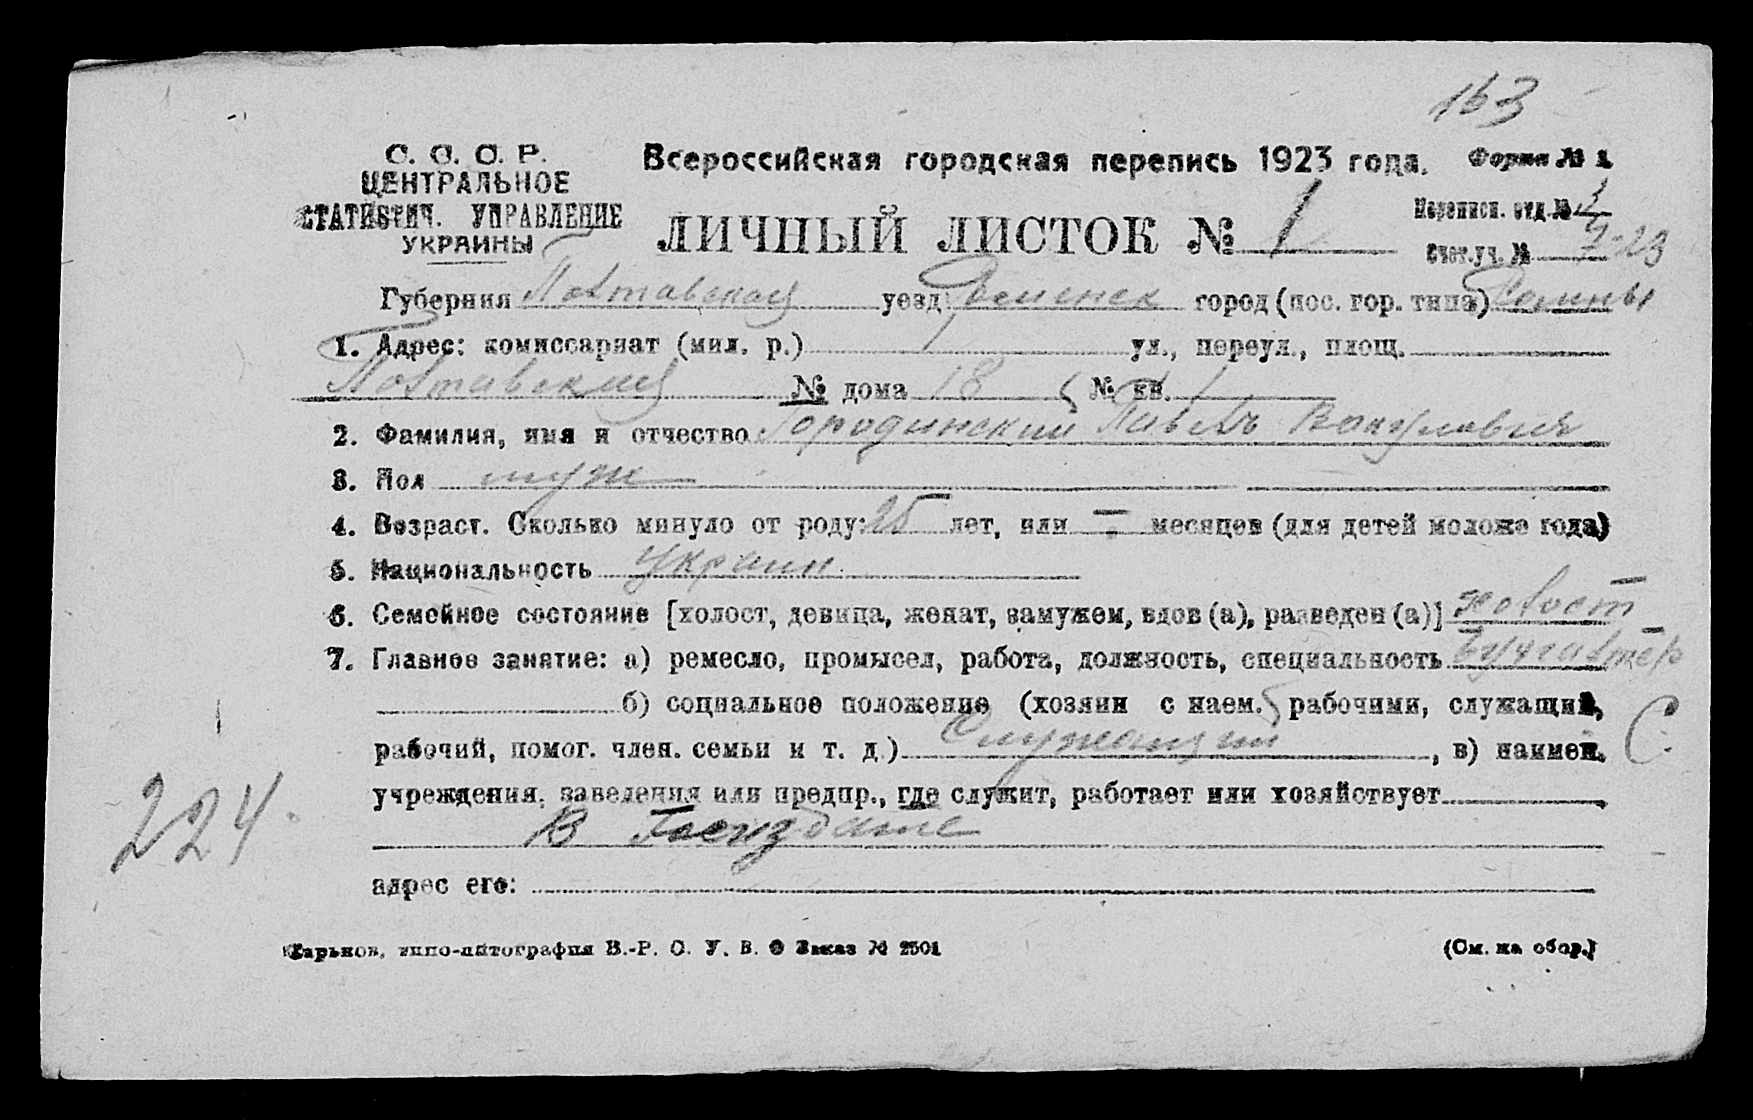 163
С. С. С. Р.
ЦЕНТРАЛЬНОЕ
СТАТИСТИЧ. УПРАВЛЕНИЕ
УКРАИНЫ
Всероссийская городская перепись 1923 года. Форма № 1
ЛИЧНЫЙ ЛИСТОК № 1
Переписн. отд. №
Счет. уч. №
Губерния Полтавская уезд Роменск город (пос. гор. типа) Ромны
1. Адрес: комиссариат (мил. р.) 1 ул., переул., площ.
Полтавская № дома 18 № кв. 1
2. Фамилия, имя и отчество Городинский Павелъ Вакулович
3. Пол муж
4. Возраст. Сколько минуло от роду: 25 лет, или – месяцев (для детей моложе года)
5. Национальность Украин.
6. Семейное состояние [холост, девица, женат, замужем, вдов (а), разведен (а)] холост
7. Главное занятие: а) ремесло, промысел, работа, должность, специальность Бухгалтер
б) социальное положение (хозяин с наем. рабочими, служащий,
рабочий, помог. член. семьи и т. д.) Служащий, в) наимен. С
учреждения, заведения или предпр., где служит, работает или хозяйствует
В Госиздате
224.
адрес его:
Харьков, типо-литография В.-Р. С. У. В. О Заказ № 2501 (См. на обор.)